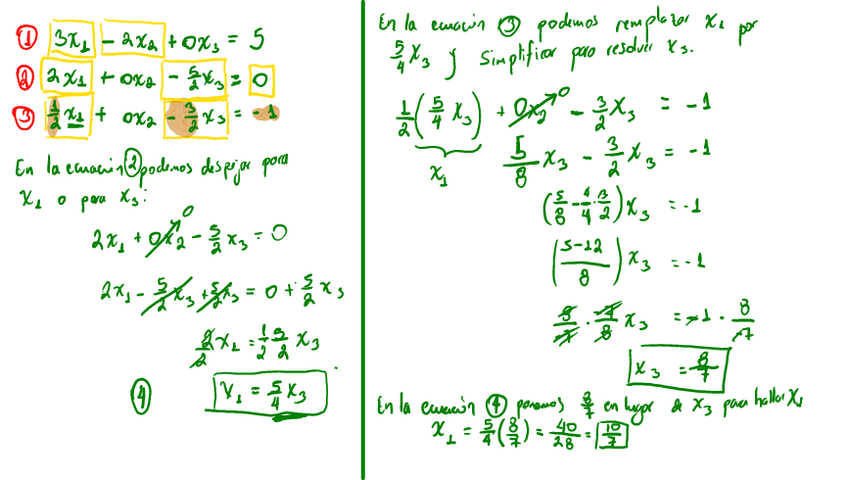 ① 3x₁ - 2x₂ + 0x₃ = 5
② 2x₁ + 0x₂ - 5/2 x₃ = 0
③ 1/2 x₁ + 0x₂ - 3/2 x₃ = -1
En la ecuación ② podemos despejar para
x₁ o para x₃:
2x₁ + 0x₂ - 5/2 x₃ = 0
0
2x₁ - 5/2 x₃ + 5/2 x₃ = 0 + 5/2 x₃
2/2 x₁ = 1/2 5/2 x₃
④ x₁ = 5/4 x₃
En la ecuación ③ podemos remplazar x₁ por
5/4 x₃ y simplificar para resolver x₃.
1/2 (5/4 x₃) + 0x₂ - 3/2 x₃ = -1
0
x₁
5/8 x₃ - 3/2 x₃ = -1
(5/8 - 4/4 · 3/2) x₃ = -1
((5-12)/8) x₃ = -1
8/-7 · -7/8 x₃ = -1 · 8/-7
x₃ = 8/7
En la ecuación ④ ponemos 8/7 en lugar de x₃ para hallar x₁
x₁ = 5/4 (8/7) = 40/28 = 10/7